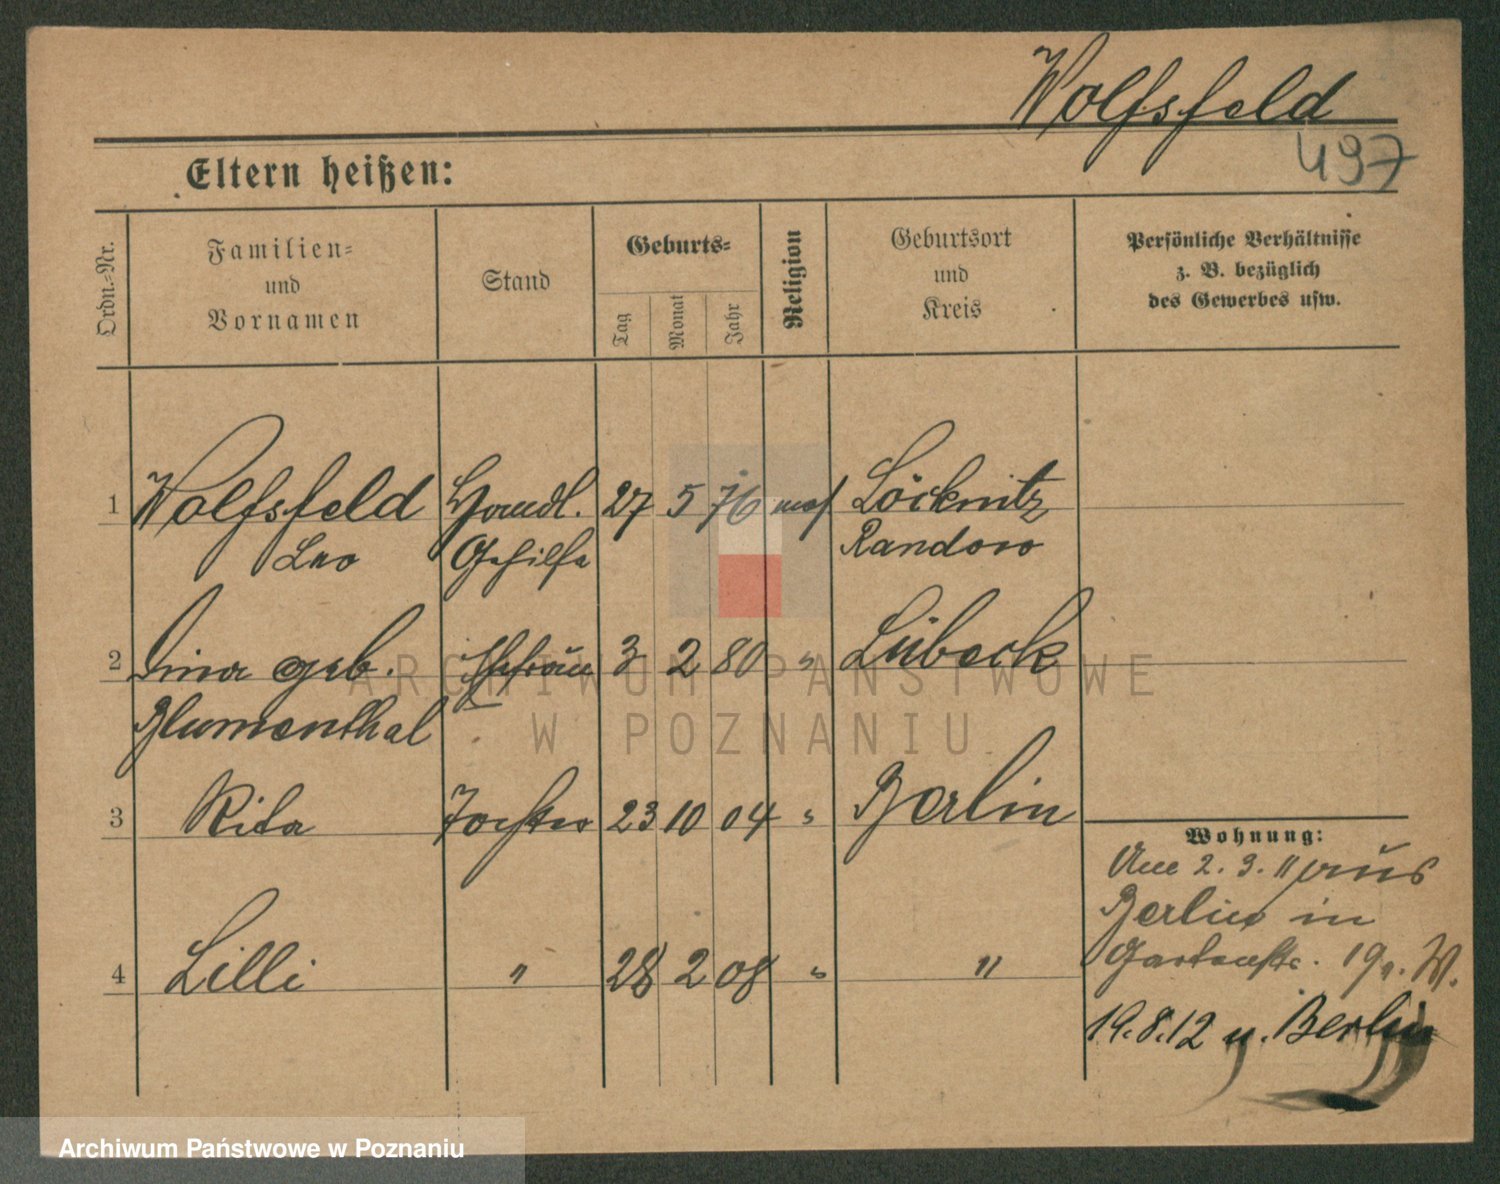 Wolfsfeld
497
Eltern heißen:
Ordn.-Nr.
Familien-
und
Vornamen
Stand
Geburts-
Tag
Monat
Jahr
Religion
Geburtsort
und
Kreis
Persönliche Verhältnisse
z. B. bezüglich
des Gewerbes usw.
1 Wolfsfeld Handl. 27 5 76 mos Löcknitz
Leo Gehilfe Randow
2 geb. Ehefrau 3 2 80 " Lübeck
Blumenthal
3 Rita Tochter 23 10 04 " Berlin
4 Lilli " 28 2 08 " "
Wohnung:
Am 2. 3. 11 aus
Berlin in
Gartenstr. 19 W.
19.8.12 n. Berlin
ARCHIWUM PAŃSTWOWE
W POZNANIU
Archiwum Państwowe w Poznaniu